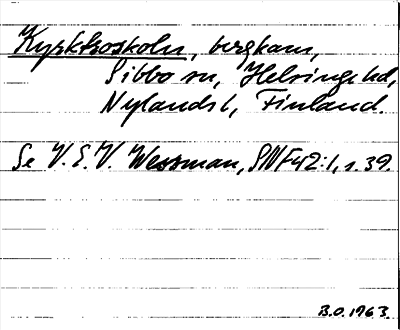 Kyrktroskoln, bergkam,
Sibbo sn, Helsinge hd,
Nylands l, Finland.
Se V.E.V. Wessman, SNF 42:1, s. 39.
B.O. 1963.